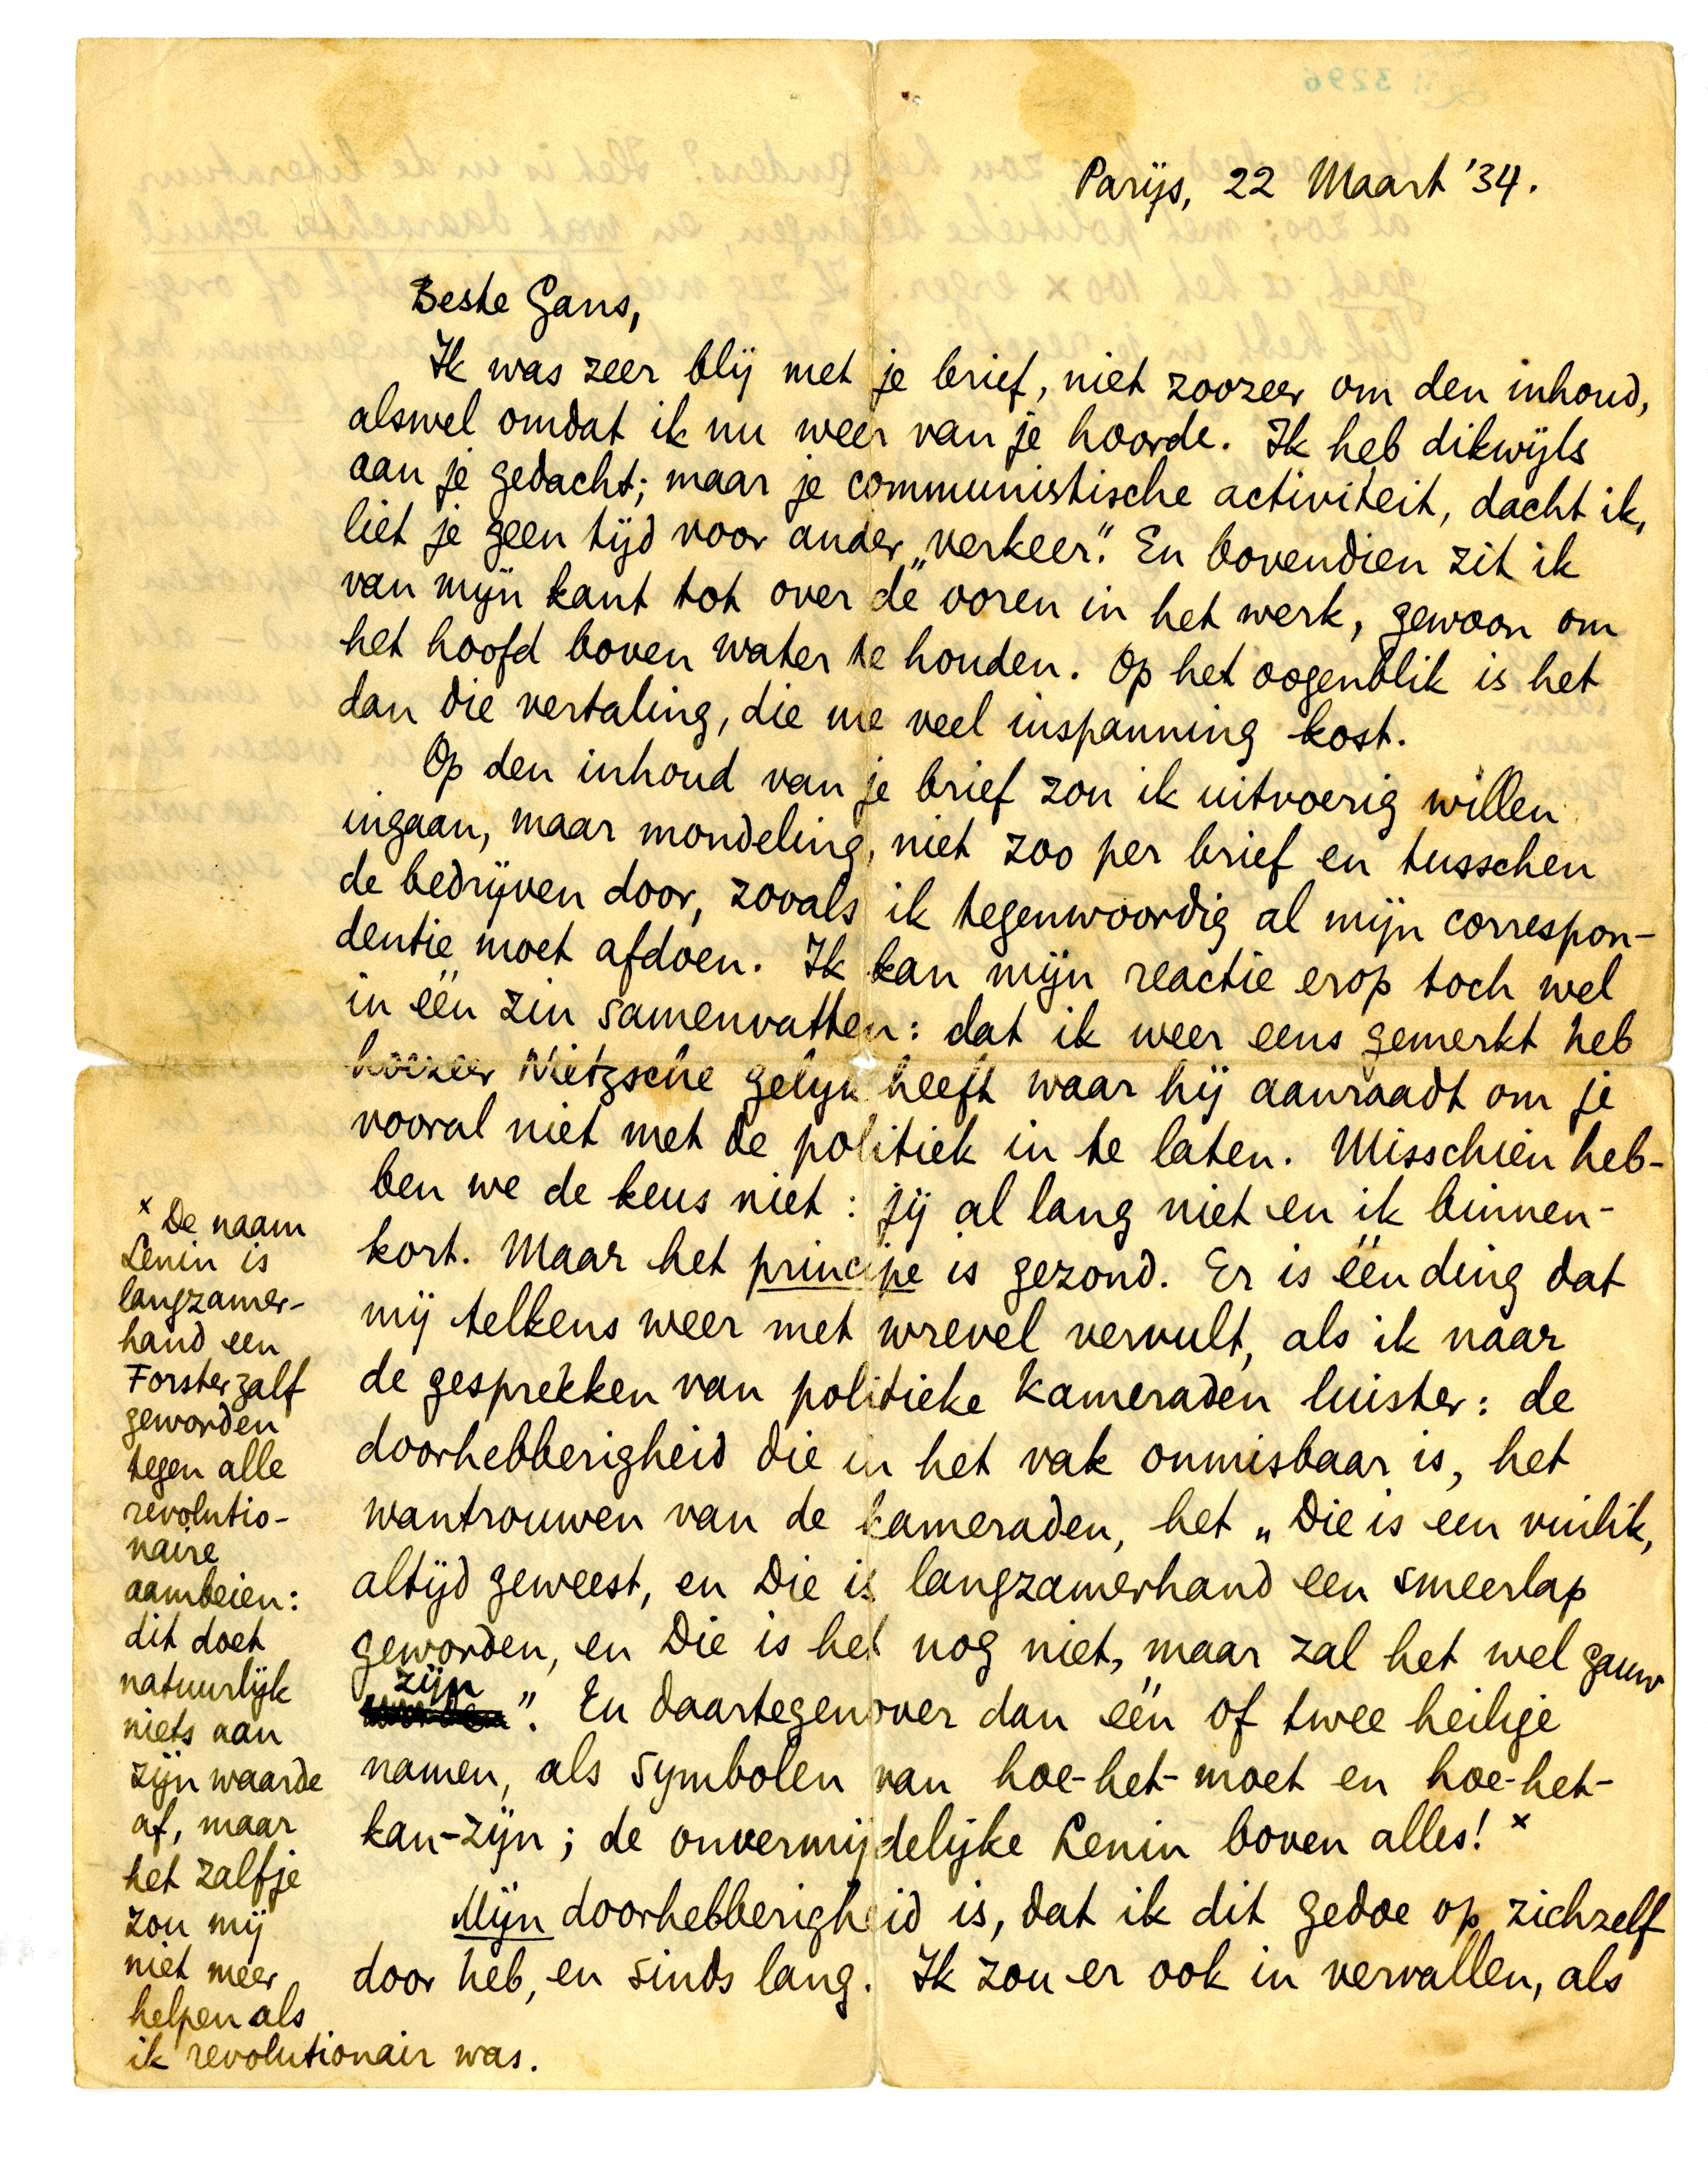 Parijs, 22 Maart '34.
Beste Gans,
Ik was zeer blij met je brief, niet zoozeer om den inhoud,
alswel omdat ik nu weer van je hoorde. Ik heb dikwijls
aan je gedacht; maar je communistische activiteit, dacht ik,
liet je geen tijd voor ander „verkeer”. En bovendien zit ik
van mijn kant tot over de ooren in het werk, gewoon om
het hoofd boven water te houden. Op het oogenblik is het
dan die vertaling, die me veel inspanning kost.
Op den inhoud van je brief zou ik uitvoerig willen
ingaan, maar mondeling, niet zoo per brief en tusschen
de bedrijven door, zooals ik tegenwoordig al mijn correspon-
dentie moet afdoen. Ik kan mijn reactie erop toch wel
in één zin samenvatten: dat ik weer eens gemerkt heb
hoezeer Nietzsche gelijk heeft waar hij aanraadt om je
vooral niet met de politiek in te laten. Misschien heb-
ben we de keus niet: jij al lang niet en ik binnen-
kort. Maar het principe is gezond. Er is één ding dat
mij telkens weer met wrevel vervult, als ik naar
de gesprekken van politieke kameraden luister: de
doorhebberigheid die in het vak onmisbaar is, het
wantrouwen van de kameraden, het „Die is een vuilik,
altijd geweest, en Die is langzamerhand een smeerlap
geworden, en Die is het nog niet, maar zal het wel gauw
zijn”. En daartegenover dan één of twee heilige
namen, als symbolen van hoe-het-moet en hoe-het-
kan-zijn; de onvermijdelijke Lenin boven alles! x
Mijn doorhebberigheid is, dat ik dit gedoe op zichzelf
door heb, en sinds lang. Ik zou er ook in vervallen, als
x De naam
Lenin is
langzamer-
hand een
Forsterzalf
geworden
tegen alle
revolutio-
naire
aambeien:
dit doet
natuurlijk
niets aan
zijn waarde
af, maar
het zalfje
zou mij
niet meer
helpen als
ik revolutionair was.